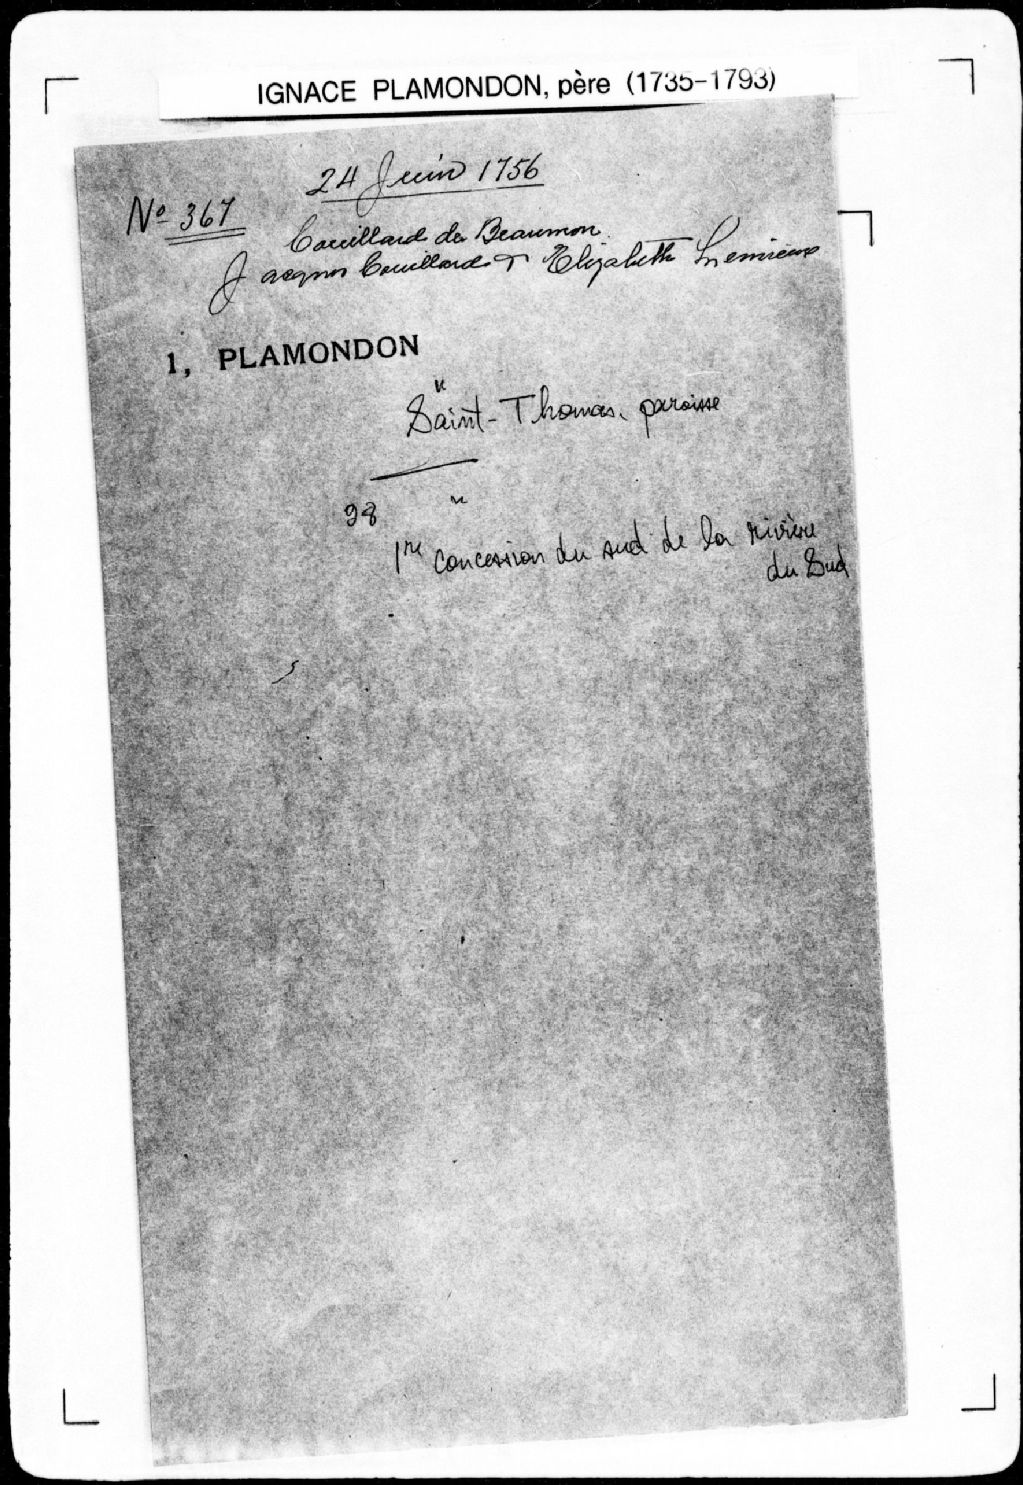 IGNACE PLAMONDON, père (1735-1793)
24 Juin 1756
No 367
Couillard de Beaumon.
Jacques Couillard & Elizabeth Lemieux
1, PLAMONDON
"
Saint-Thomas, paroisse
98 "
1re concession du sud de la rivière
du Sud